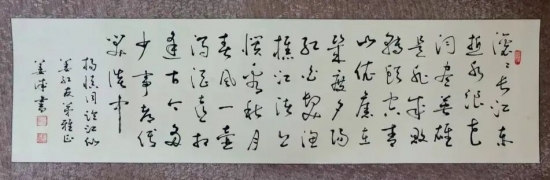 滚滚长江东
逝水浪花
淘尽英雄
是非成败
转头空青
山依旧在
几度夕阳
红白发渔
樵江渚上
惯看秋月
春风一壶
浊酒喜相
逢古今多
少事都付
笑谈中
杨慎词临江仙
红友弟雅正
书